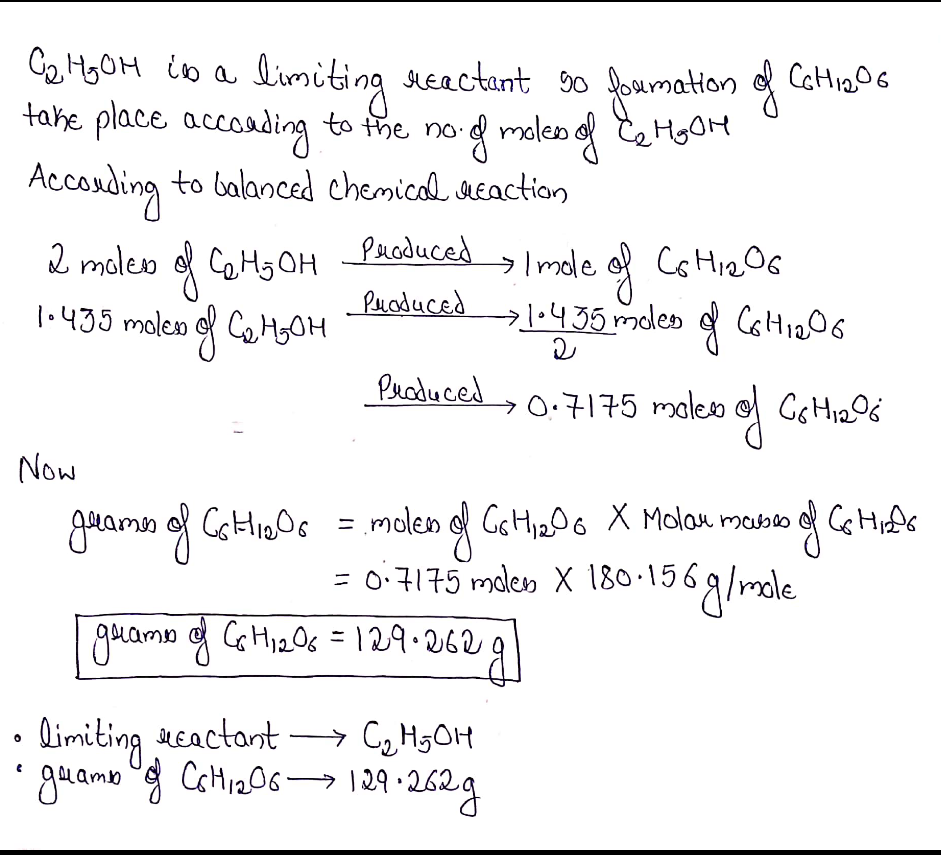 C2H5OH is a limiting reactant so formation of C6H12O6
take place according to the no. of moles of C2H5OH
According to balanced chemical reaction
2 moles of C2H5OH Produced → 1 mole of C6H12O6
1.435 moles of C2H5OH Produced → 1.435/2 moles of C6H12O6
Produced → 0.7175 moles of C6H12O6
Now
grams of C6H12O6 = moles of C6H12O6 X Molar mass of C6H12O6
= 0.7175 moles X 180.156 g/mole
grams of C6H12O6 = 129.262 g
• limiting reactant → C2H5OH
• grams of C6H12O6 → 129.262g